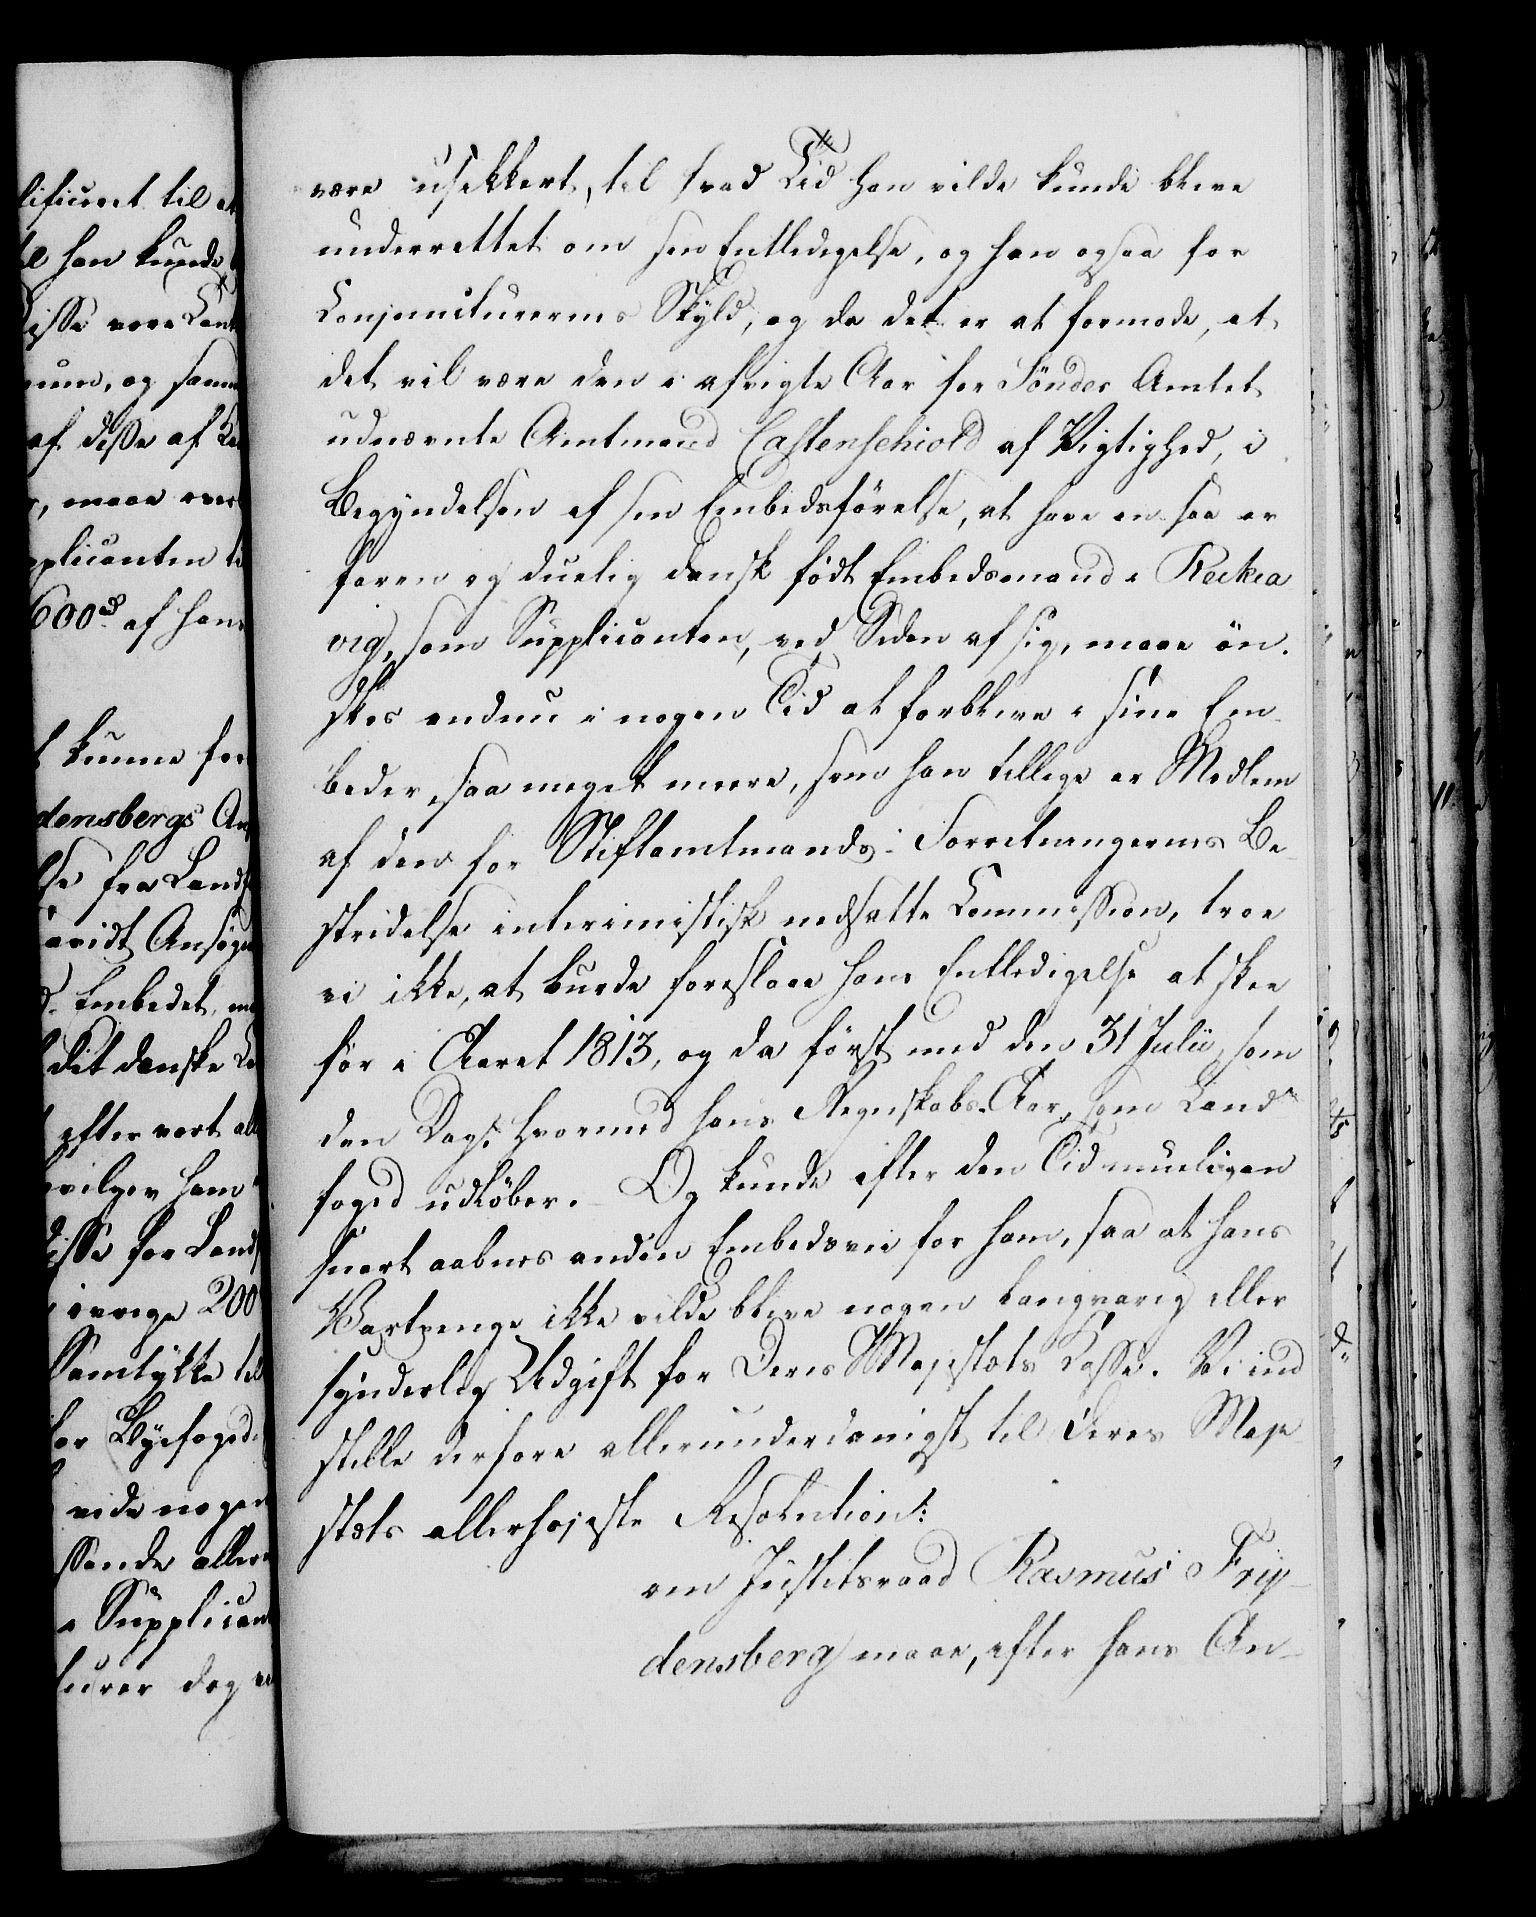 lificeret til at
til han kunde
disse være Land
num, og samme
af disse af
maae over
pplicanten
600rd af hans
kunne for
densbergs An
fra Land
vidt Ansøge
Embedet,
dit danske
efter vort al
vilger ham
disse for Land
øvrige 200
Samtykke til
for Byefoged
vide noget
ssende aller
Supplicant
turer dog
være usikkert, til hvad Tid han vilde kunde blive
underrettet om sin Entledigelse, og han ogsaa for
Conjuncturernes Skyld, og da det er at formode, at
det vil være den i afvigte Aar for Sönder Amtet
udnævnte Amtmand Castenschiold af Vigtighed, i
Begyndelsen af sin Embedsförelse, at have en saa er
faren og duelig dansk födt Embedsmand i Reikia
vig, som Supplicanten, ved Siden af sig, maae ön-
skes endnu i nogen Tid at forblive i sine Em-
beder, saa meget meere, som han tillige er Medlem
af den for Stiftamtmands-Forretningernes Be-
stridelse interimistisk nedsatte Commission, troe
vi ikke, at burde foreslaae hans Entledigelse at skee
för i Aaret 1813, og da först med den 31 Julii, som
den Dag, hvormed hans Regnskabs-Aar, som Land-
foged udlöber. Og kunde efter den Tid mueligen
snart aabnes anden Embedsvei for ham, saa at hans
Vartpenge ikke vilde blive nogen langvarig eller
synderlig Udgift for Deres Majestæts Casse. Vi ind
stille derfore allerunderdanigst til Deres Maje
stæts allerhöjeste Resolution:
om Justitsraad Rasmus Fry-
densberg maae, efter hans An-